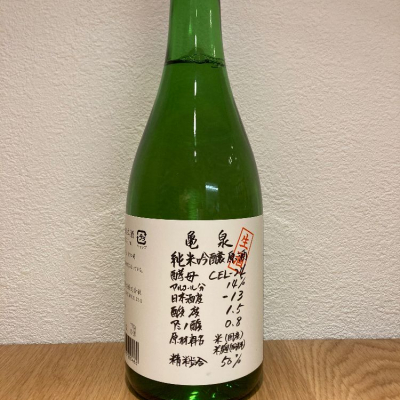 亀泉
純米吟醸原酒
生酒
酵母 CEL-24
アルコール分 14%
日本酒度 -13
酸度 1.5
アミノ酸 0.8
原材料名 米(国産)
米麹(国産米)
精米歩合 50%